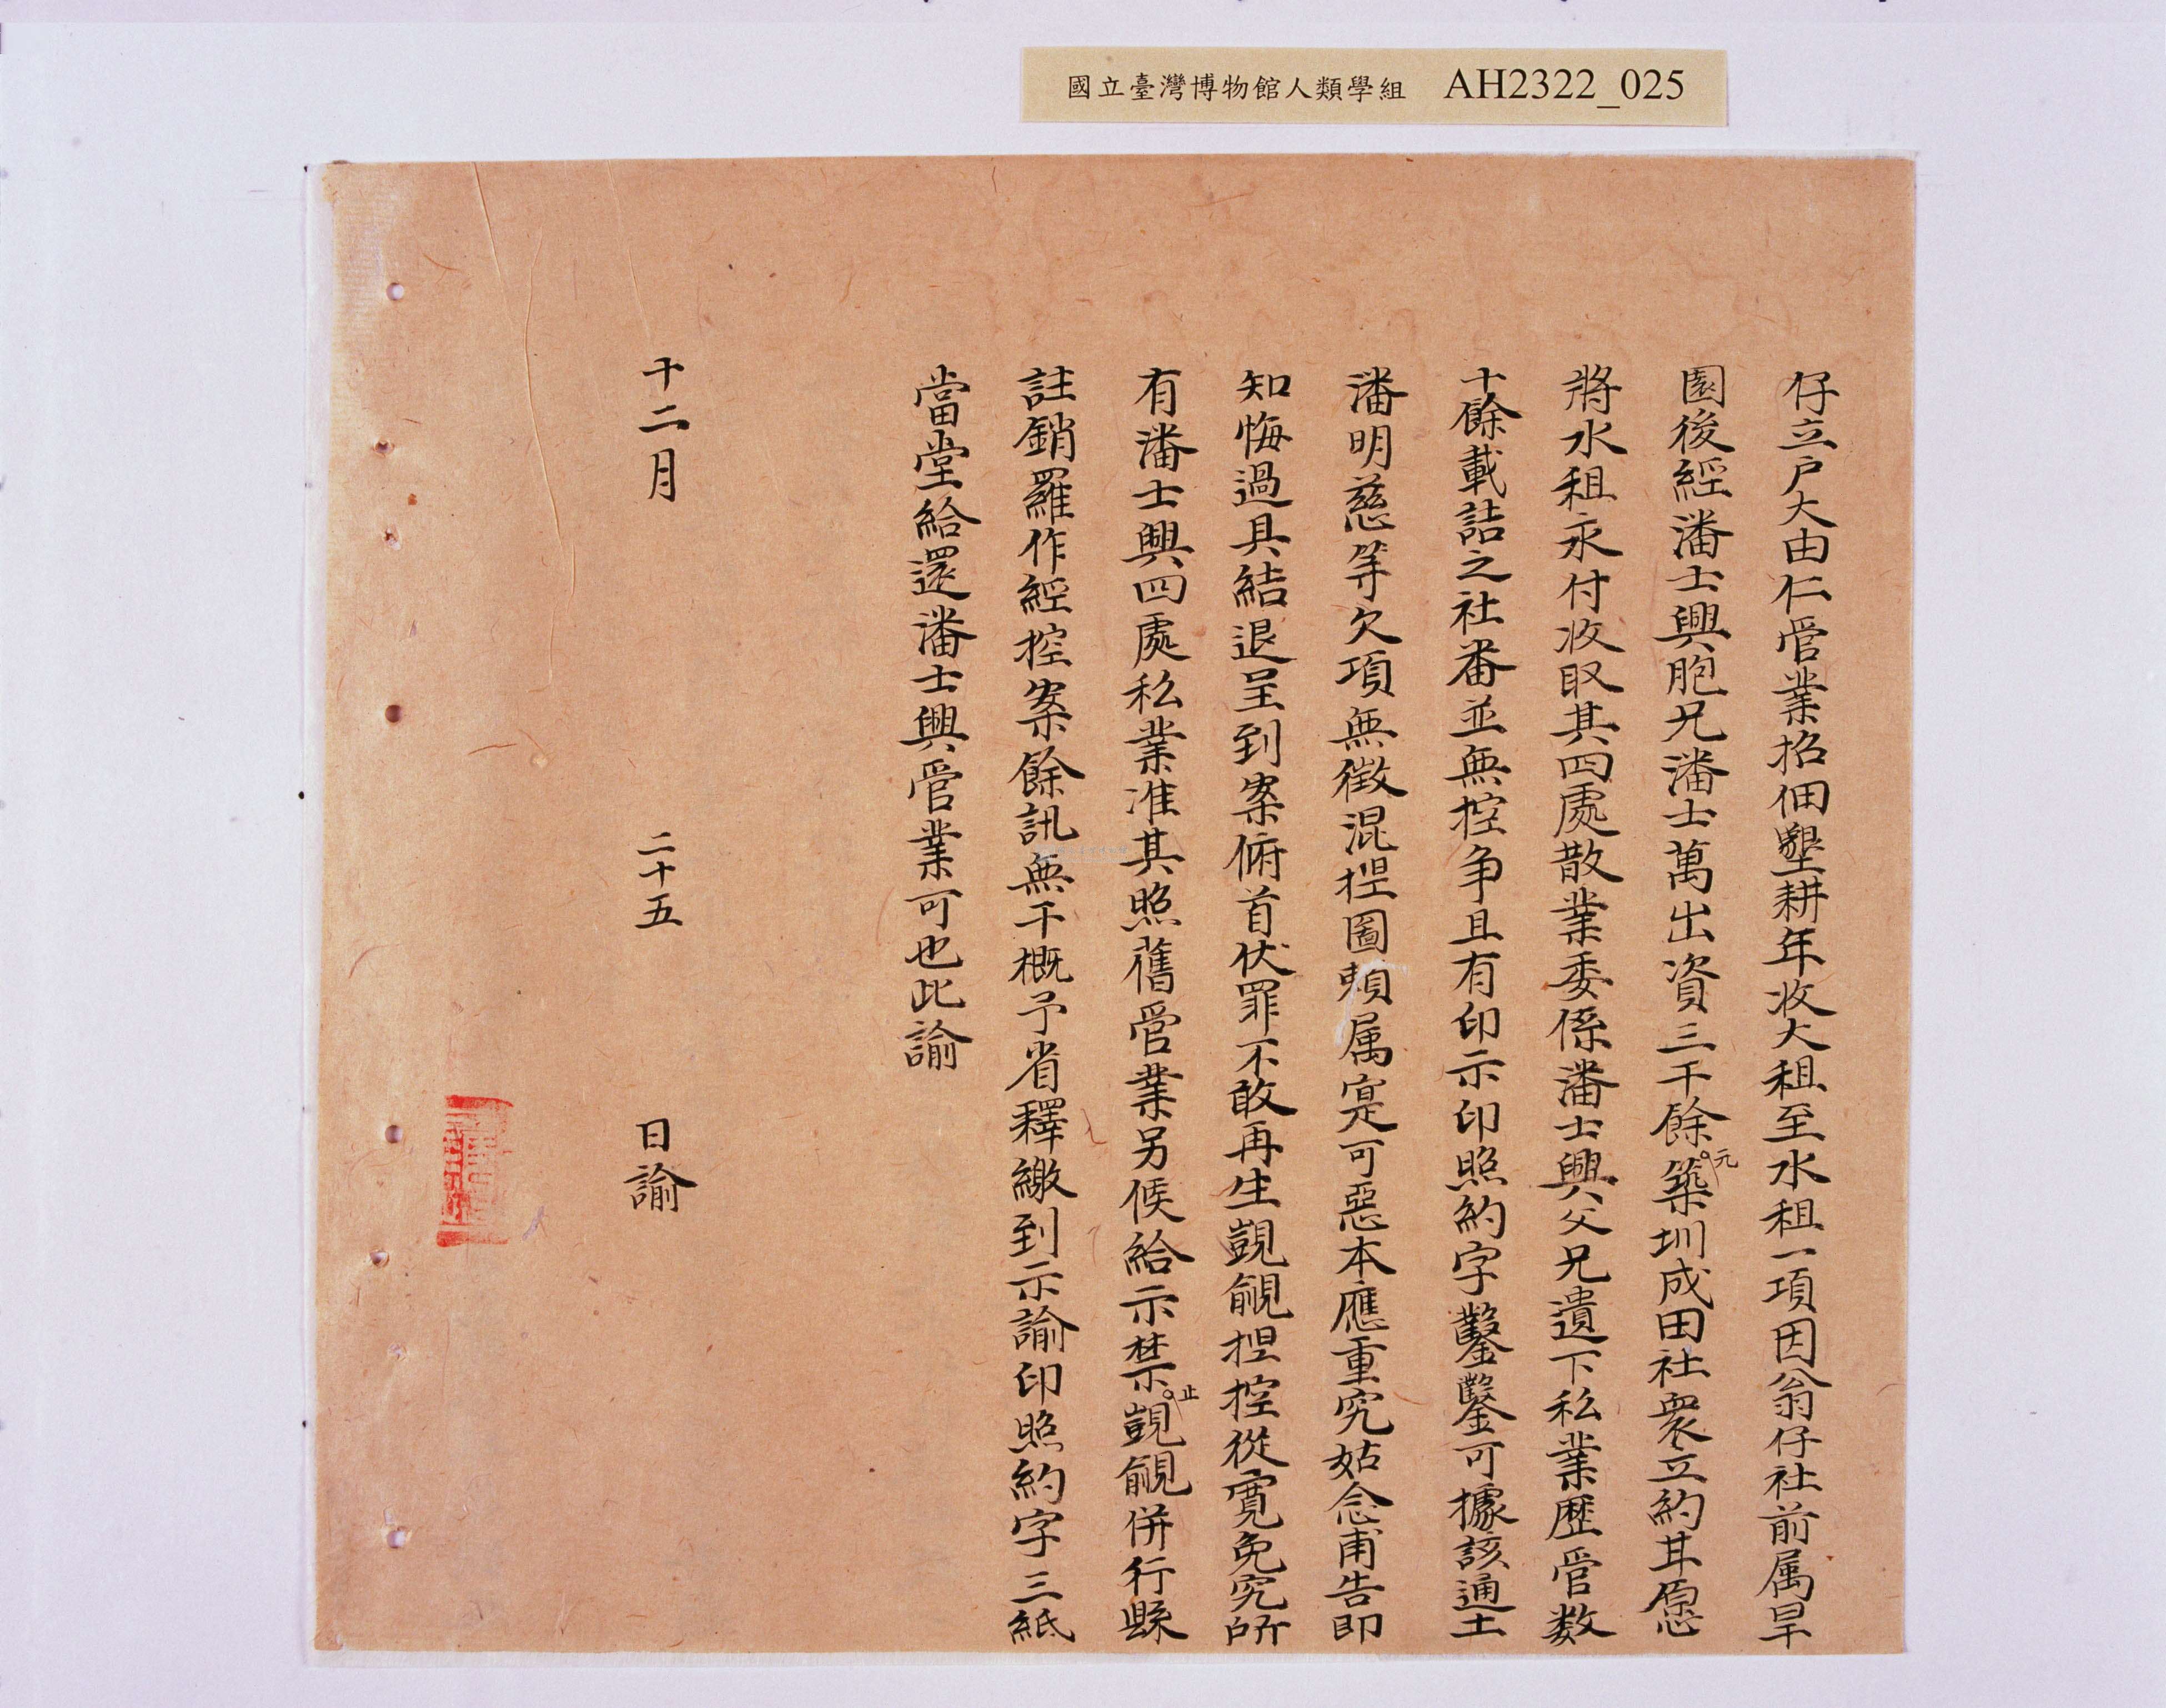 國立臺灣博物館人類學組 AH2322_025
仔立户大由仁管業招佃墾耕年收大租至水租一項因翁仔社前属旱
園後經潘士興胞兄潘士萬出資三千餘元築圳成田社衆立約甘愿
將水租永付收取其四處散業委係潘士興父兄遺下私業歷管数
十餘載詰之社番並無控争且有印示印照約字鑿鑿可據該通土
潘明慈等欠項無徵混捏圖賴属寔可惡本應重究姑念甫告即
知悔過具結退呈到案俯首伏罪不敢再生覬覦捏控從寬免究所
有潘士興四處私業准其照舊管業另候給示禁止覬覦併行縣
註銷羅作經控案餘訊無干概予省釋繳到示諭印照約字三紙
當堂給還潘士興管業可也此諭
十二月 二十五 日諭